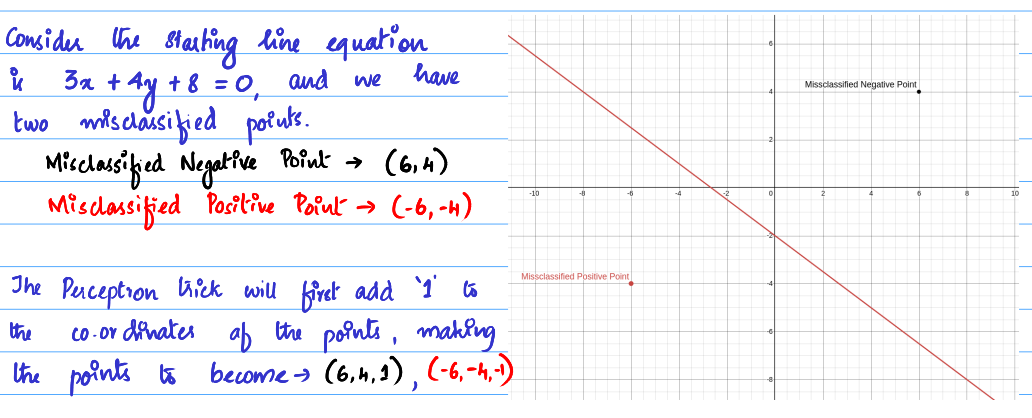 Consider the starting line equation
is 3x + 4y + 8 = 0, and we have
two misclassified points.
Misclassified Negative Point → (6,4)
Misclassified Positive Point → (-6,-4)
The Perceptron trick will first add '1' to
the co-ordinates of the points, making
the points to become → (6,4,1), (-6,-4,-1)
6
Misssclassified Negative Point
4
2
-10 -8 -6 -4 -2 0 2 4 6 8 10
-2
Misssclassified Positive Point
-4
-6
-8